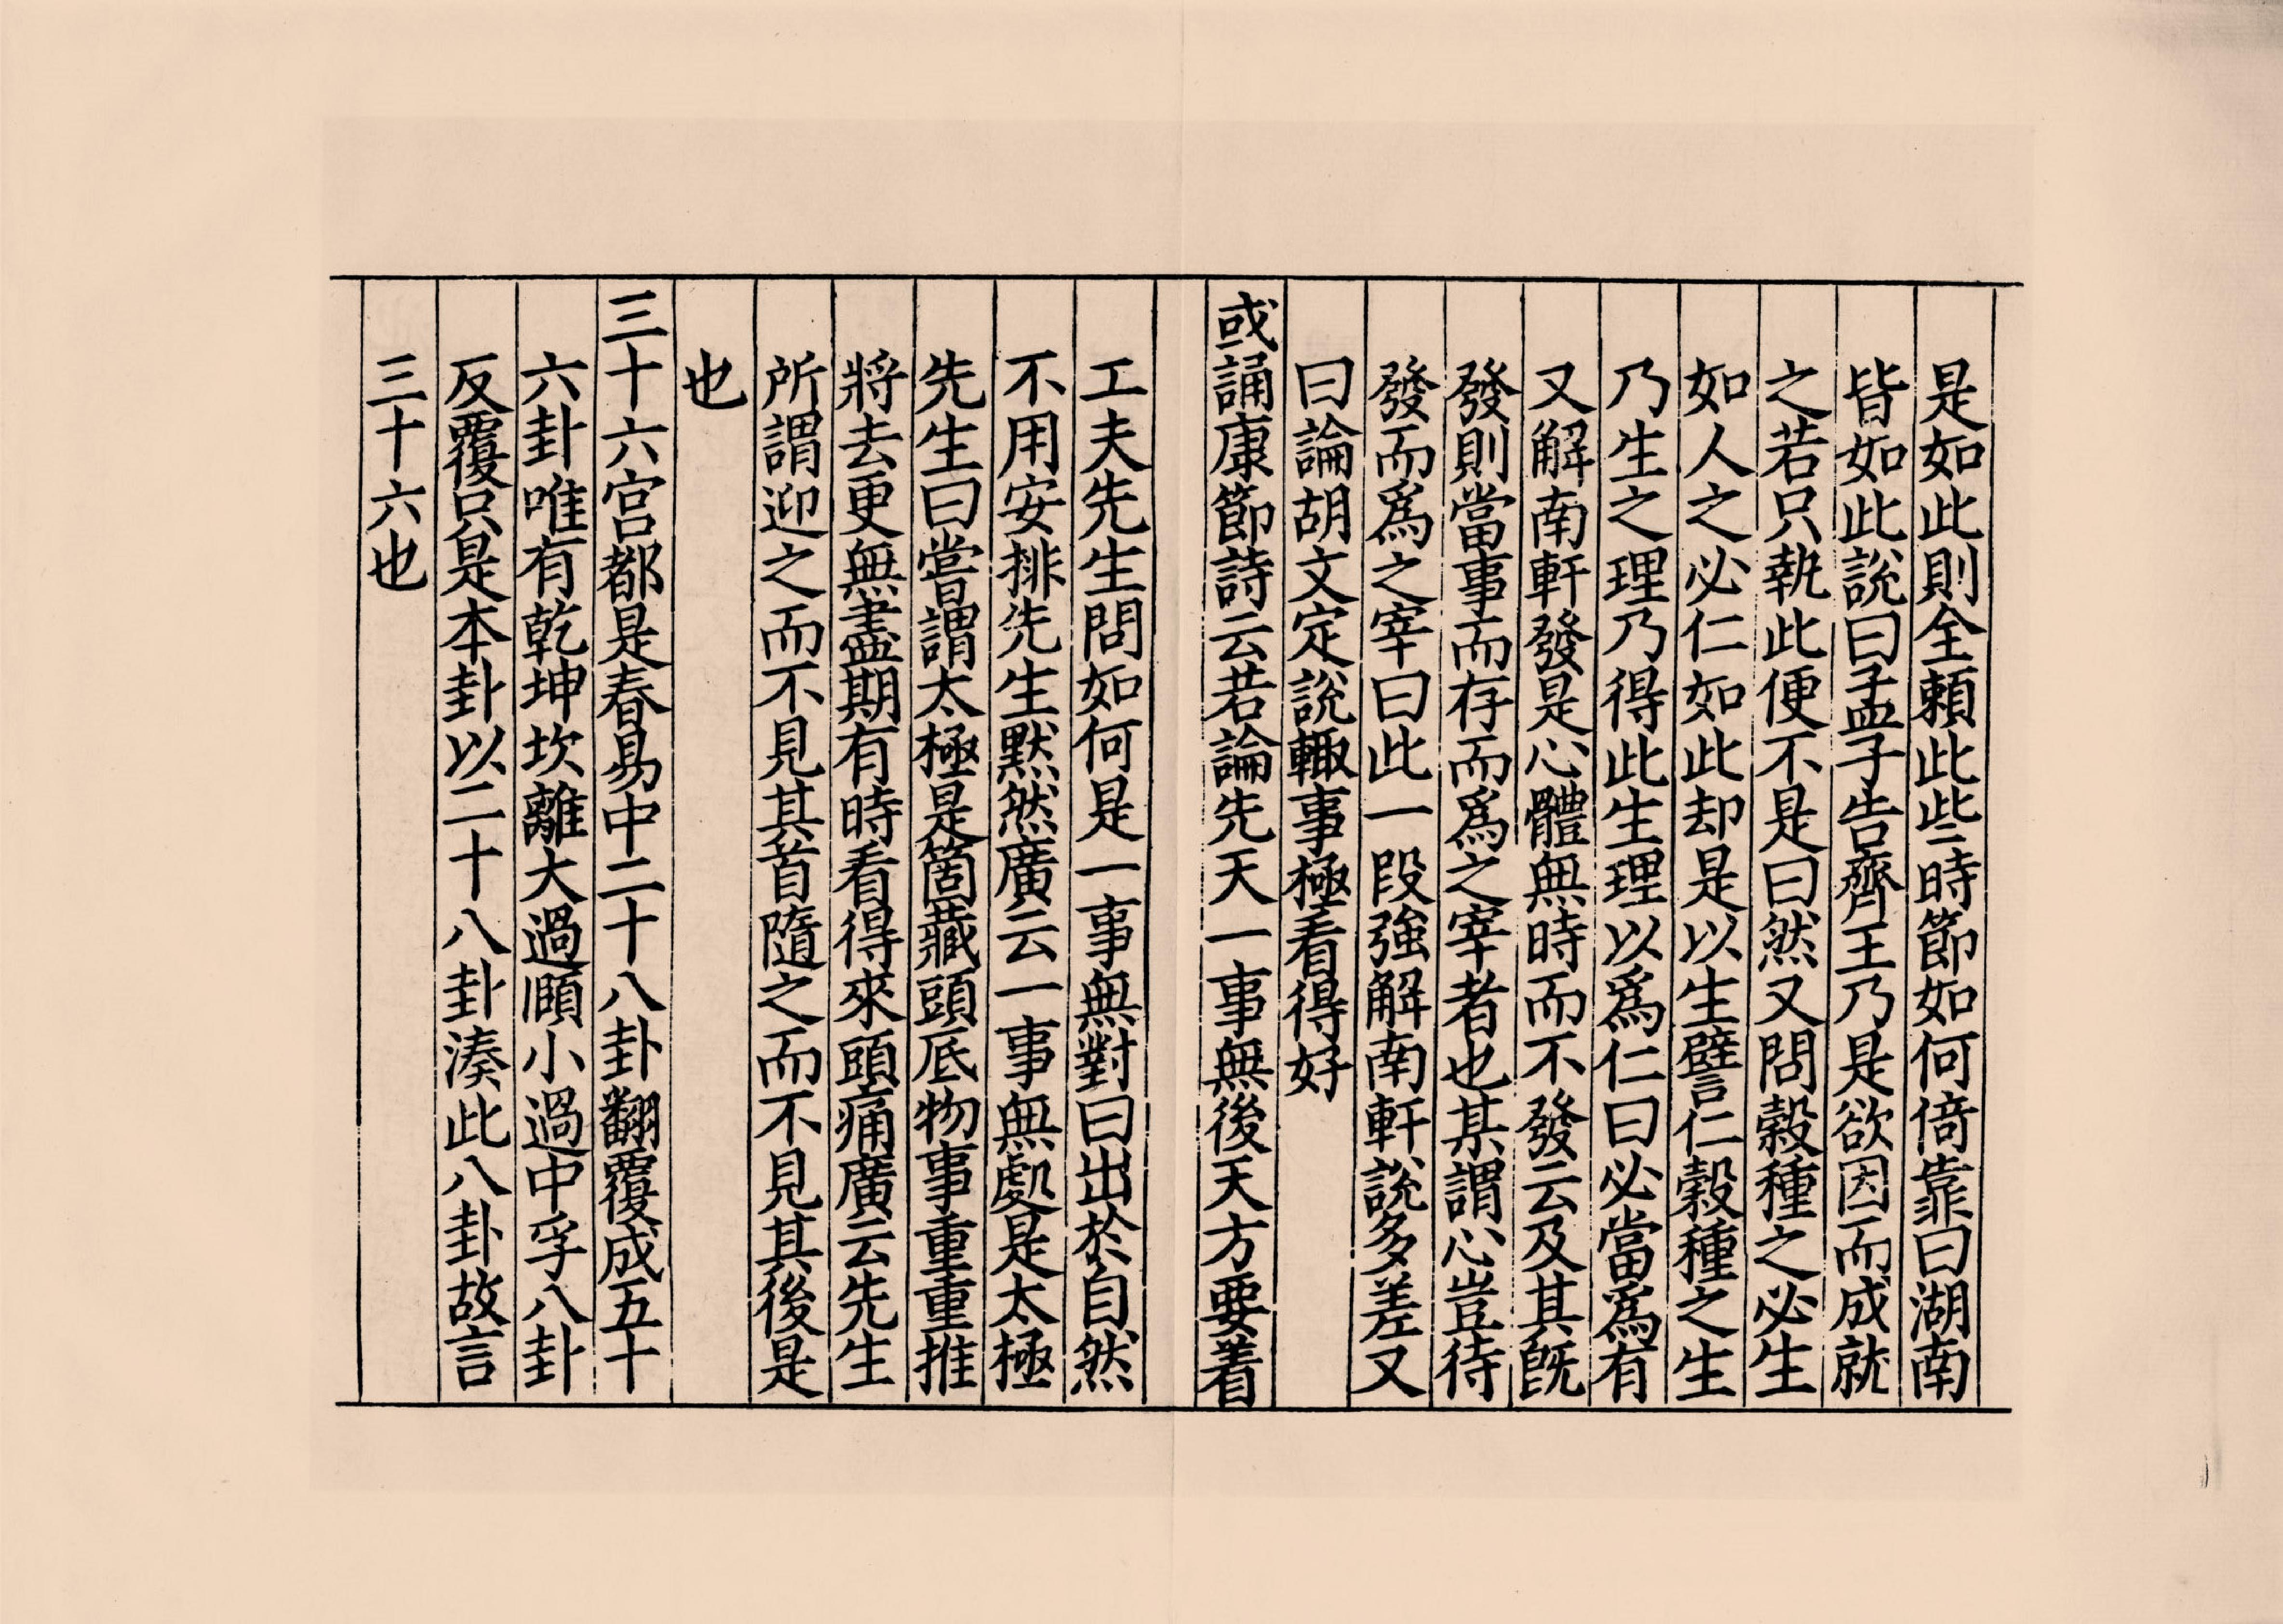 是如此則全頼此些時節如何倚靠曰湖南
皆如此說曰孟子告齊王乃是欲因而成就
之若只執此便不是曰然又問穀種之必生
如人之必仁如此却是以生譬仁穀種之生
乃生之理乃得此生理以爲仁曰必當爲有
又解南軒發是心體無時而不發云及其旣
發則當事而存而爲之宰者也某謂心豈待
發而爲之宰曰此一段強解南軒說多差又
曰論胡文定說輙事極看得好
或誦康節詩云若論先天一事無後天方要着
工夫先生問如何是一事無對曰出於自然
不用安排先生默然廣云一事無處是太極
先生曰嘗謂太極是箇藏頭底物事重重推
將去更無盡期有時看得來頭痛廣云先生
所謂迎之而不見其首隨之而不見其後是
也
三十六宮都是春易中二十八卦翻覆成五十
六卦唯有乾坤坎離大過頤小過中孚八卦
反覆只是本卦以二十八卦湊此八卦故言
三十六也